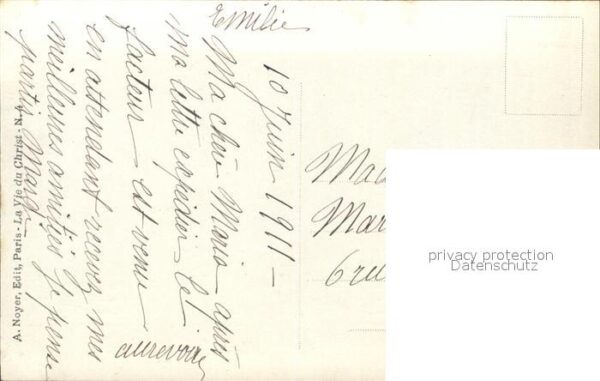 Emilie
10 Juin 1911 -
Ma chère Maria après
ma lettre expédier le
facteur est venu
en attendant recever mes
meilleures amitiés Je pense
partir Mardi
aurevoire
A. Noyer, Edit, Paris - La Vie du Christ - N.A.
Mad
Mar
6 rue
privacy protection
Datenschutz